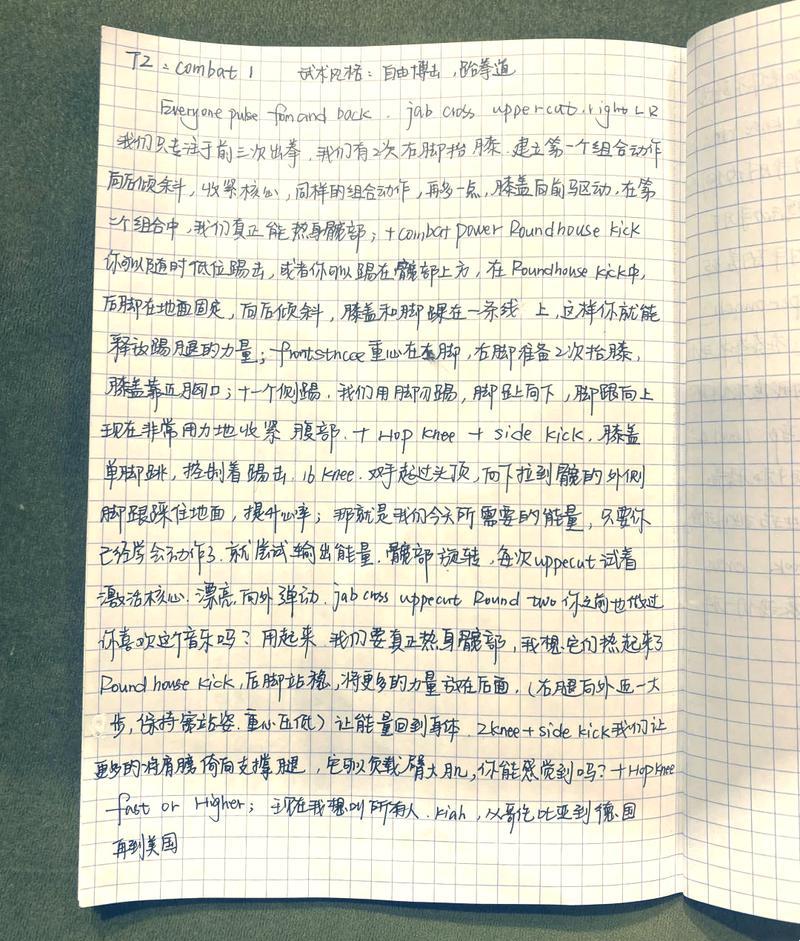 T2：combat 1 试术风格：自由搏击，跆拳道
Everyone pulse fornand back . jab cross uppercut.right LR
我们只专注于前三次出拳，我们有2次右脚抬膝．建立第一个组合动作
向后倾斜，收紧核心，同样的组合动作，再多一点，膝盖向前驱动，在第
二个组合中，我们真正能热身髋部；+combat power Roundhouse kick
你可以随时低位踢击，或者你可以踢在髋部上方，在Roundhouse kick中，
后脚在地面固定，向后倾斜，膝盖和脚踝在一条线 上，这样你就能
释放踢腿的力量；frontstncoe重心在左脚，右脚准备2次抬膝，
膝盖靠近胸口；+一个侧踢．我们用脚刀踢，脚趾向下，脚跟向上
现在非常用力地收紧 腹部．+ Hop knee + side kick，膝盖
单脚跳，控制着踢击．16 knee．双手超过头顶，向下拉到髋的外侧
脚跟踩住地面，提升心率；那就是我们今天所需要的能量，只要你
已经学会动作了．就尝试输出能量．髋部旋转，每次uppecut试着
激活核心．漂亮．向外弹动．jab cross uppecut Round two你之前也做过
你喜欢这个音乐吗？用起来．我们要真正热身髋部，我想它们热起来了
Round house kick，后脚站稳，将更多的力量放在后面．（右腿向外迈一大
步，保持宽站姿．重心压低）让能量回到身体．2knee+side kick我们让
更多的将肩膀倚向支撑腿，它可以负载臂大肌，你能感觉到吗？+HopKnee
fast or Higher；现在我想叫所有人．kiah，从哥伦比亚到德国
再到美国